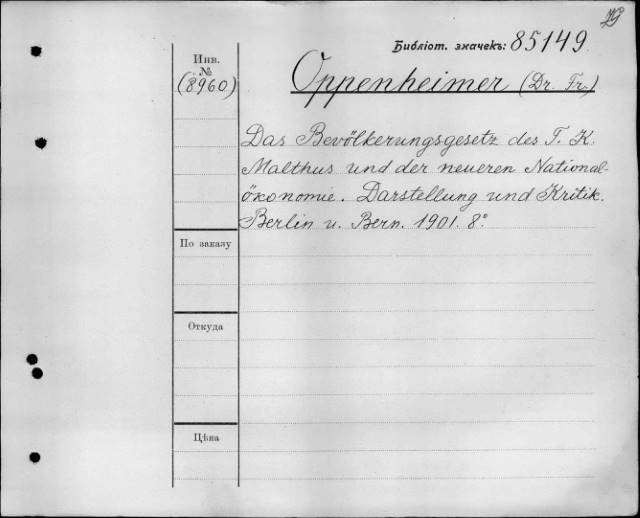 Библіот. значекъ: 85149.
Инв.
№
(8960)
Oppenheimer (Dr. Fr.)
Das Bevölkerungsgesetz des T. R.
Malthus und der neueren National-
ökonomie. Darstellung und Kritik.
Berlin u. Bern. 1901. 8°
По заказу
Откуда
Цѣна